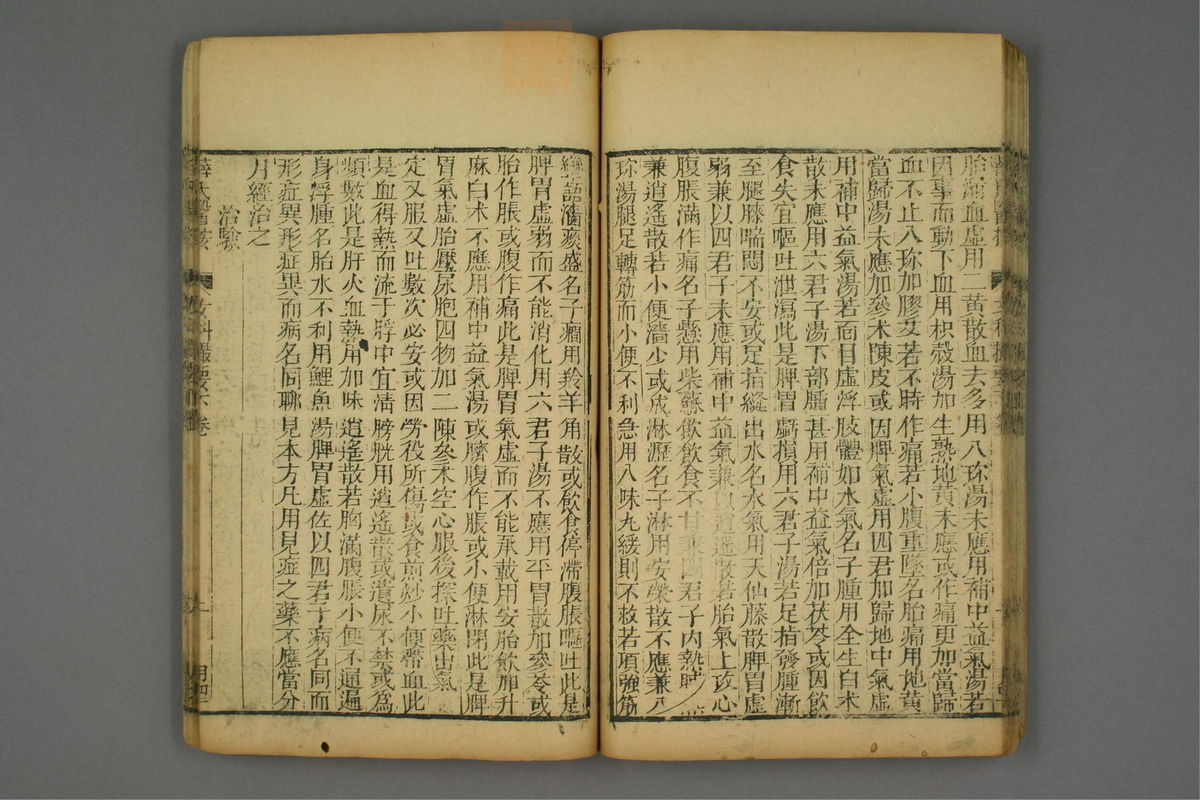 胎漏血虛用二黃散血去多用八珍湯未應用補中益氣湯若
因事而動下血用枳殼湯加生熟地黃未應或作痛更加當歸
血不止八珍加膠艾若不時作痛若小腹重墜名胎痛用地黃
當歸湯未應加參朮陳皮或因脾氣虛用四君加歸地中氣虛
用補中益氣湯若面目虛浮肢體如水氣名子腫用全生白朮
散未應用六君子湯下部腫甚用補中益氣倍加茯苓或因飲
食失宜嘔吐泄瀉此是脾胃虧損用六君子湯若足指發腫漸
至腿膝喘悶不安或足指縫出水名水氣用天仙藤散脾胃虛
弱兼以四君子未應用補中益氣兼以逍遙散若胎氣上攻心
腹脹滿作痛名子懸用紫蘇飲飲食不甘兼四君子內熱晡
兼逍遙散若小便濇少或成淋瀝名子淋用安榮散不應兼八
珍湯腿足轉筋而小便不利急用八味丸緩則不救若項強筋
攣語澁痰盛名子癎用羚羊角散或飲食停滯腹脹嘔吐此是
脾胃虛弱而不能消化用六君子湯不應用平胃散加參苓或
胎作脹或腹作痛此是脾胃氣虛而不能承載用安胎飲加升
麻白朮不應用補中益氣湯或臍腹作脹或小便淋閉此是脾
胃氣虛胎壓尿胞四物加二陳參朮空心服後探吐藥出氣
定又服又吐數次必安或因勞役所傷或食煎炒小便帶血此
是血得熱而流于脬中宜清膀胱用逍遙散或遺尿不禁或為
頻數此是肝火血熱用加味逍遙散若胸滿腹脹小便不通遍
身浮腫名胎水不利用鯉魚湯脾胃虛佐以四君子病名同而
形症異形症異而病名同聊見本方凡用見症之藥不應當分
月經治之
治驗
薛氏醫按
女科撮要下卷